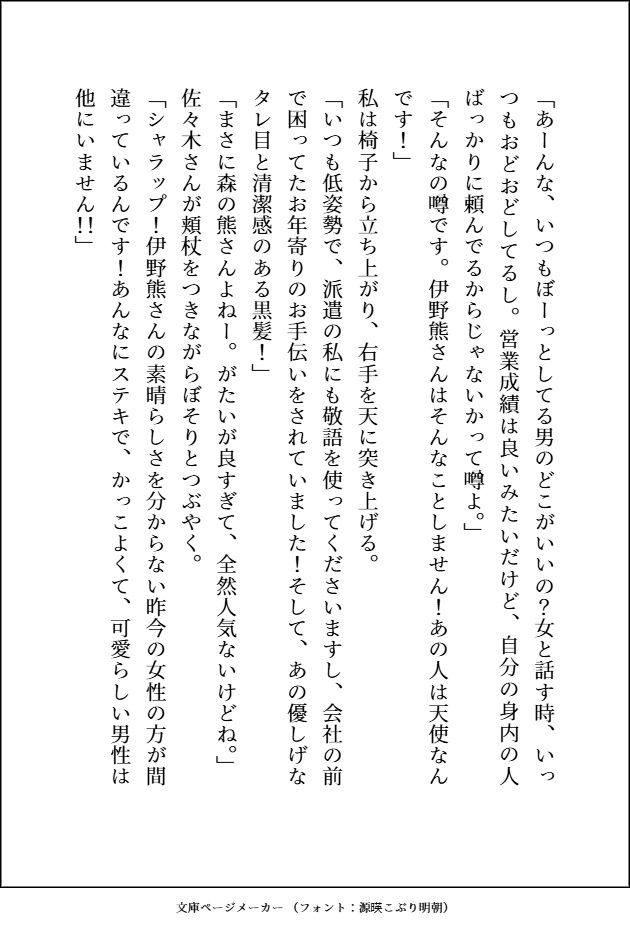 「あーんな、いつもぼーっとしてる男のどこがいいの？女と話す時、いっ
つもおどおどしてるし。営業成績は良いみたいだけど、自分の身内の人
ばっかりに頼んでるからじゃないかって噂よ。」
「そんなの噂です。伊野熊さんはそんなことしません！あの人は天使なん
です！」
私は椅子から立ち上がり、右手を天に突き上げる。
「いつも低姿勢で、派遣の私にも敬語を使ってくださいますし、会社の前
で困ってたお年寄りのお手伝いをされていました！そして、あの優しげな
タレ目と清潔感のある黒髪！」
「まさに森の熊さんよねー。がたいが良すぎて、全然人気ないけどね。」
佐々木さんが頬杖をつきながらぼそりとつぶやく。
「シャラップ！伊野熊さんの素晴らしさを分からない昨今の女性の方が間
違っているんです！あんなにステキで、かっこよくて、可愛らしい男性は
他にいません!!」
文庫ページメーカー （フォント：源暎こぶり明朝）